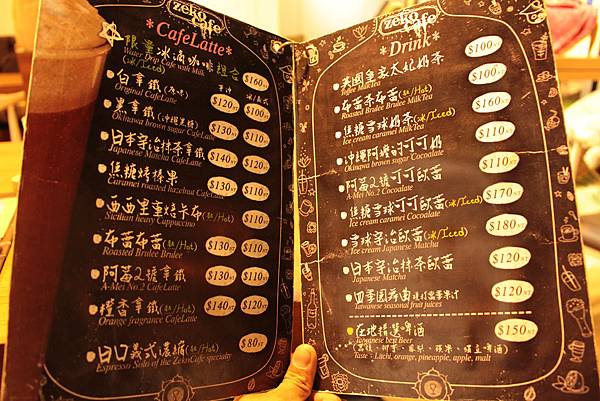 zeko cafe
*CafeLatte*
限量冰滴咖啡組合
Water Drip Cafe with Milk
(冰/Iced)
$160NT
白拿鐵(原味)
Original CafeLatte
$120NT $100NT
黑拿鐵(沖繩黑糖)
Okinawa brown sugar CafeLatte
$130NT $110NT
日本宇治抹茶拿鐵
Japanese Matcha CafeLatte
$140NT $120NT
焦糖烤榛果
Caramel roasted hazelnut CafeLatte
$130NT $110NT
西西里重焙卡布(熱/Hot)
Sicilian heavy Cappuccino
$110NT
布蕾布蕾(熱/Hot)
Roasted Brulee Brulee
$130NT $110NT
阿嬤2號拿鐵
A-Mei No.2 CafeLatte
$130NT $110NT
橙香拿鐵(熱/Hot)
Orange fragrance CafeLatte
$140NT $120NT
Espresso Solo of the ZekoCafe specialty
$80NT
zeko cafe
*Drink*
英國皇家太妃奶茶
Toffee MilkTea
$100NT
布蕾茶布蕾(熱/Hot)
Roasted Brulee Brulee MilkTea
$100NT
焦糖雪球奶茶(冰/Iced)
Ice cream caramel MilkTea
$160NT
Okinawa brown sugar Cocoalate
$110NT
A-Mei No.2 Cocoalate
$110NT
焦糖雪球可可歐蕾(冰/Iced)
Ice cream caramel Cocoalate
$170NT
雪球宇治歐蕾(冰/Iced)
Ice cream Japanese Matcha
$180NT
日本宇治抹茶歐蕾
Japanese Matcha
$120NT
Taiwanese seasonal fruit juices
$120NT
在地精選啤酒
Taiwanese best Beer
$150NT
Taste - Lichi, orange, pineapple, apple, malt